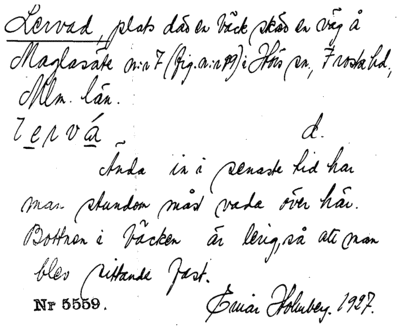 Lervad, plats där en bäck skär en väg å
Maglasäte n:r 7 (fig. n:r 49) i Hörs sn, Frosta hd,
Mlm. län.
lervá d.
Ända in i senaste tid har
man stundom måst vada över här.
Bottnen i bäcken är lerig, så att man
blev sittande fast.
Nr 5559. Einar Holmberg. 1927.